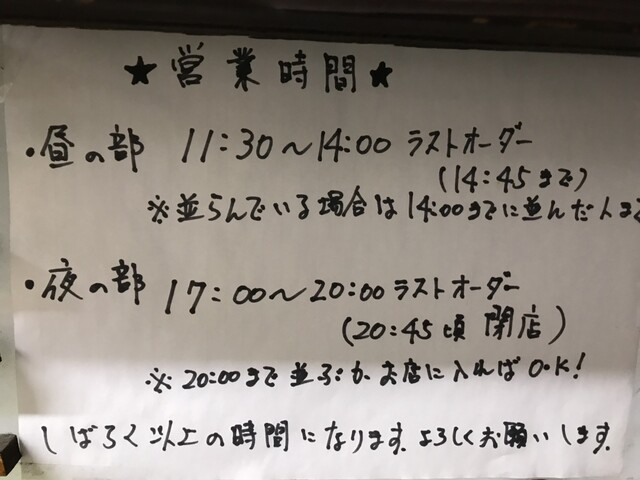 ★営業時間★
・昼の部 11:30～14:00 ラストオーダー
(14:45まで)
※並らんでいる場合は14:00までに並んだ人まで
・夜の部 17:00～20:00 ラストオーダー
(20:45頃 閉店)
※20:00まで並ぶか、お店に入ればO.K!
しばらく以上の時間になります。よろしくお願いします。